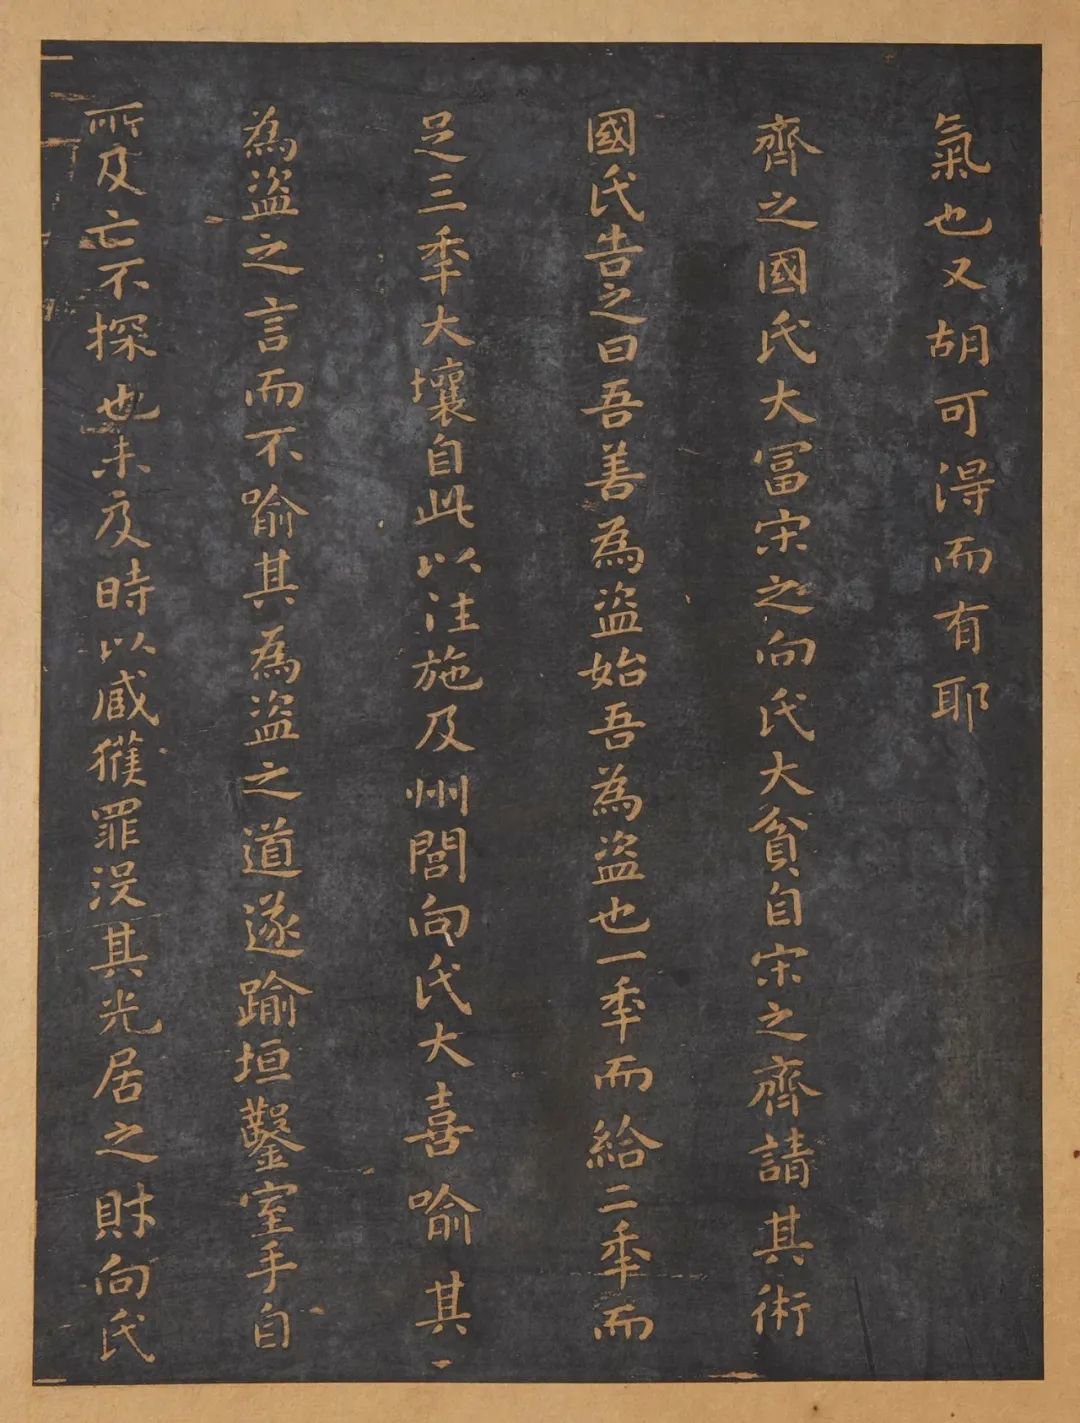 氣也又胡可得而有耶
齊之國氏大冨宋之向氏大貧自宋之齊請其術
國氏告之曰吾善為盜始吾為盜也一秊而給二秊而
足三秊大壤自此以注施及州閭向氏大喜喻其
為盜之言而不喻其為盜之道遂踰垣鑿室手自
所及亡不探也未及時以臧獲罪没其先居之財向氏